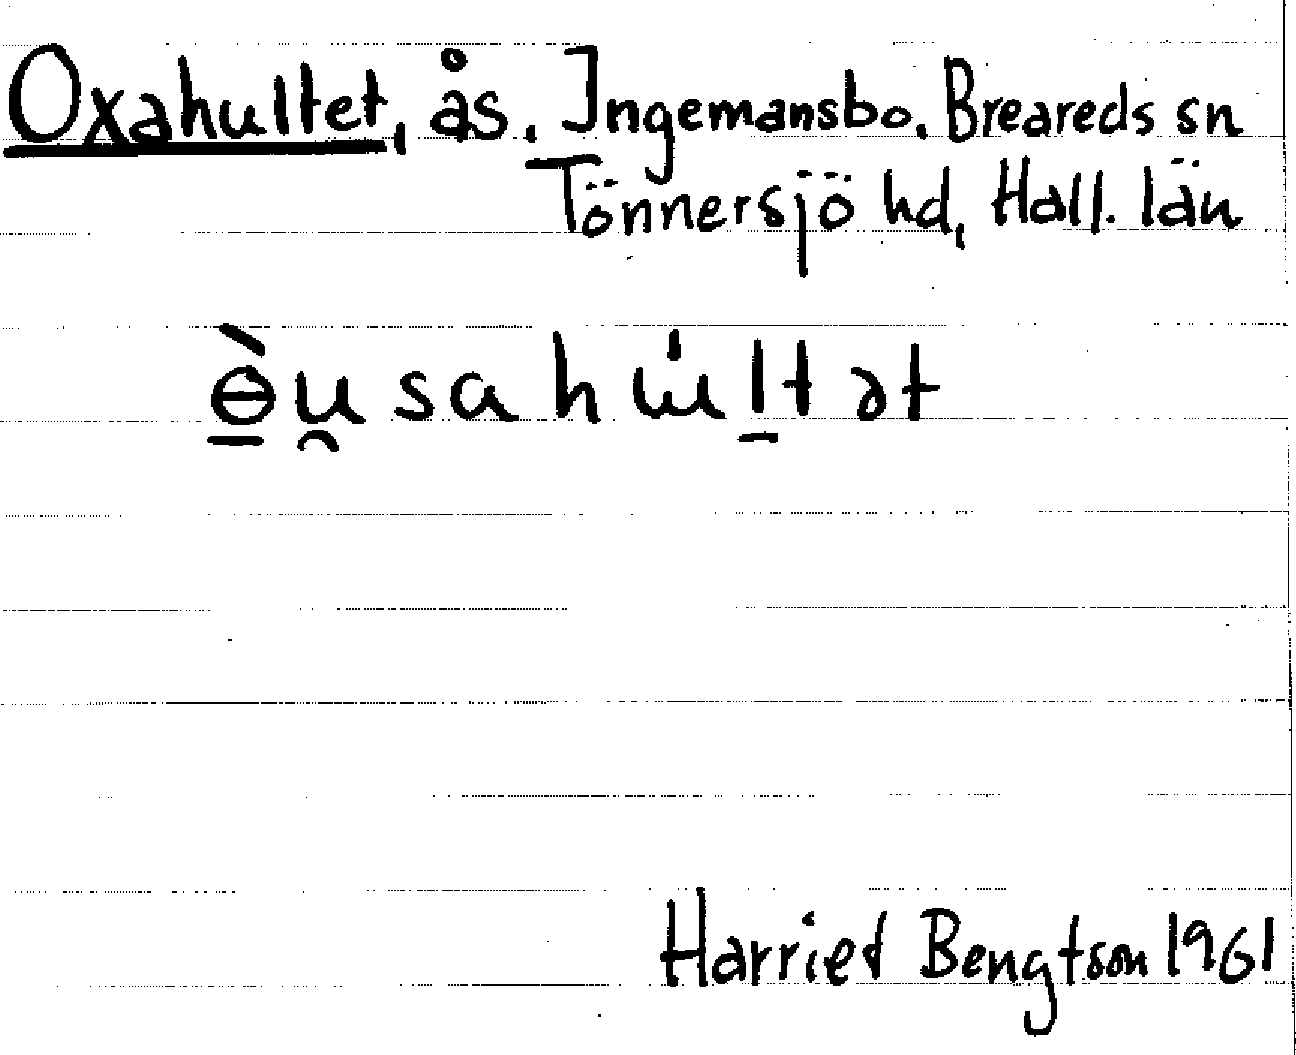 Oxahultet, ås. Ingemansbo. Breareds sn
Tönnersjö hd, Hall. län
ɵ̲̀u̯sahu̇l̲tət
Harriet Bengtson 1961